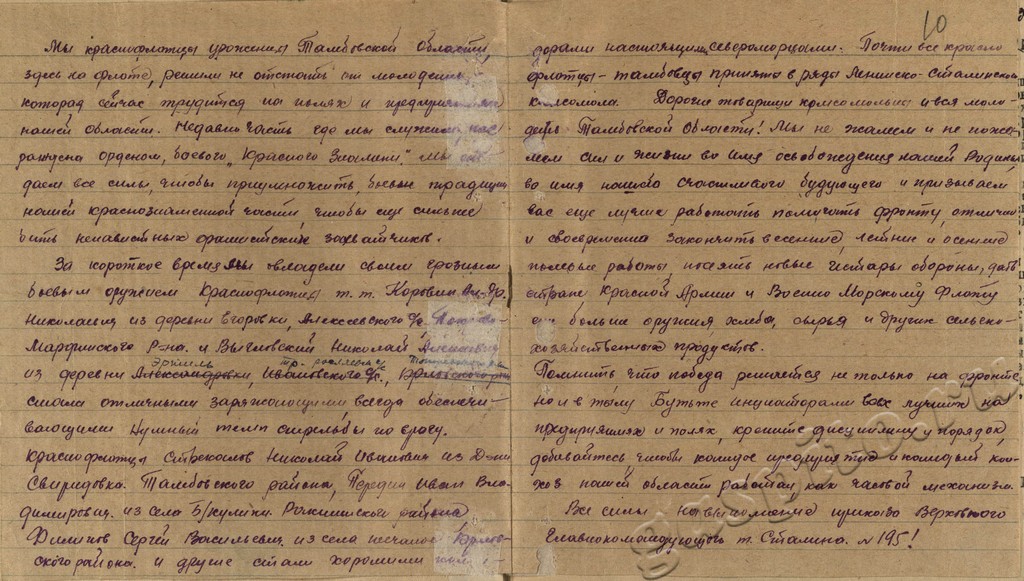 Мы краснофлотцы уроженцы Тамбовской области,
здесь на флоте, решили не отстать от молодежи,
которая сейчас трудится на полях и предприятиях
нашей области. Недавно часть где мы служим, наг
раждена орденом, боевого „Красного Знамени." Мы от
даем все силы, чтобы приумножить боевые традиции
нашей краснознаменной части чтобы еще сильнее
бить ненавистных фашистских захватчиков.
За короткое время мы овладели своим грозным
боевым оружием Краснофлотцы т.т. Коровин
Николаевич из деревни Егоровки, Алексеевского с/с
Марфинского Р-на. и Выгловский Николай
Эртиль
из деревни Александровки, Ивановского с/с.,
стали отличными заряжающими всегда обеспечи-
вающими нужный темп стрельбы по врагу.
Краснофлотцы Стрекалов Николай Иванович из Д-ни
Свиридовка. Тамбовского района, Передин Иван Вла
димирович. из села Б/кулики. Ракшинского района
Филипов Сергей Васильевич. из села
ского района. и другие стали хорошими
10
дорами настоящими североморцами. Почти все красно
флотцы - тамбовцы приняты в ряды Ленинско-Сталинского
Комсомола. Дорогие товарищи комсомольцы и вся моло
дежь Тамбовской области! Мы не жалеем и не пожа-
леем сил и жизни во имя освобождения нашей Родины,
во имя нашего счастливого будующего и призываем
вас еще лучше работать помогать фронту, отлично
и своевременно закончить весенние, летние и осенние
полевые работы, посеять новые гектары обороны, дать
стране Красной Армии и Военно Морскому Флоту
еще больше оружия хлеба, сырья и других сельско-
хозяйственных продуктов.
Помнить что победа решается не только на фронте
но и в тылу Будьте инициаторами всех лучших на
предприятиях и полях, крепите дисциплину и порядок
добивайтесь чтобы каждое предприятие и каждый кол-
хоз нашей области работал, как часовой механизм.
Все силы на выполнение приказа Верховного
Главнокомандующего т. Сталина. N 195!